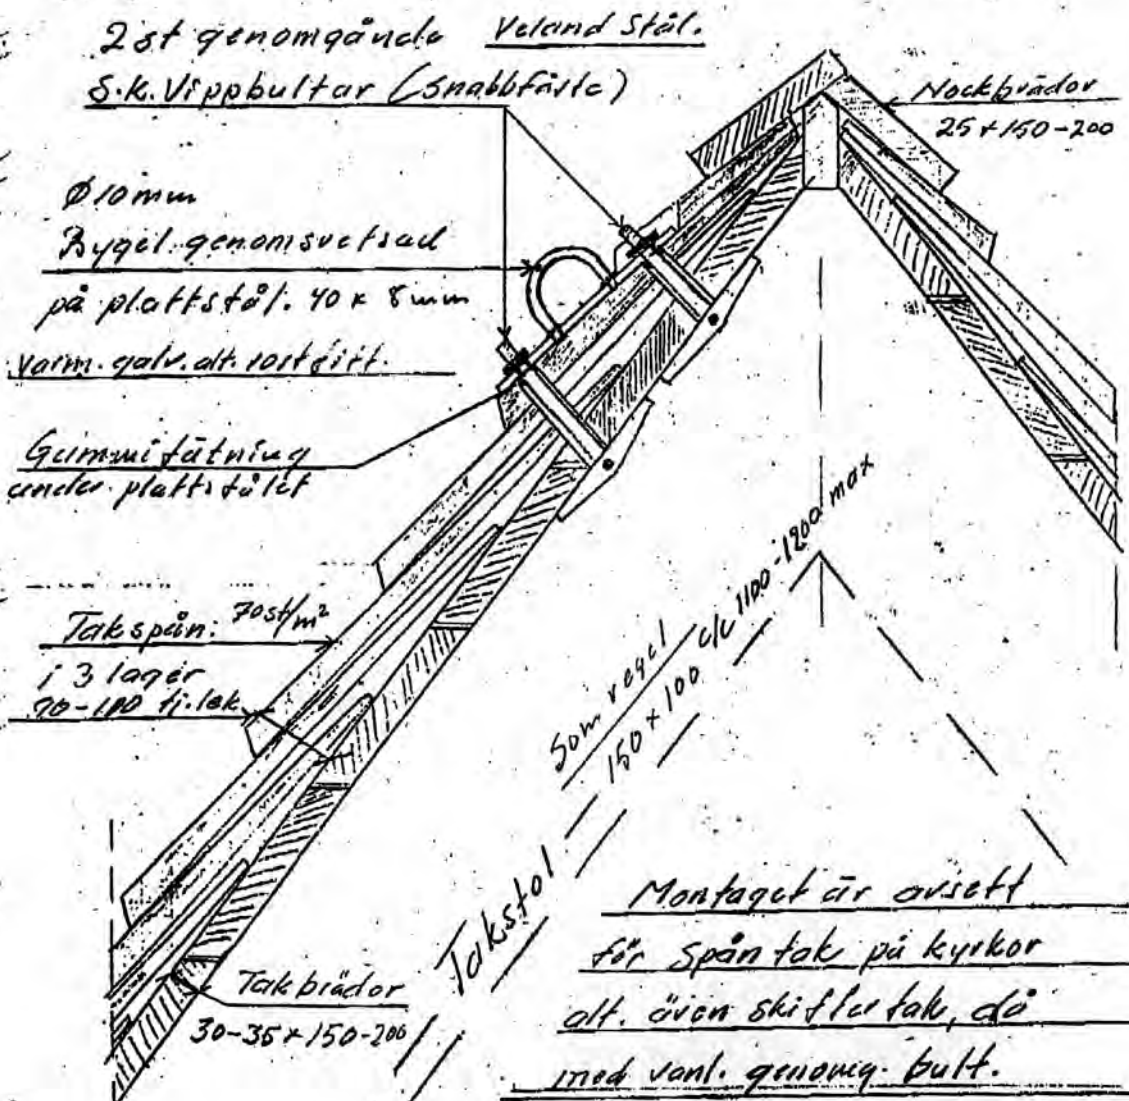 2 st genomgående Veland Stål.
S.k. Vippbultar (Snabbfäste)
Nockbrädor
25 × 150-200
Ø10mm
Bygel. genomsvetsad
på plattstål. 40 × 8 mm
varm. galv. alt. rostfitt.
Gummitätning
under plattstålet
Takspån: 70st/m²
i 3 lager
90-100 tj.lek
Som regel
150 × 100 c/c 1100-1200 max
Takstol
Takbrädor
30-35 × 150-200
Montaget är avsett
för Spåntak på kyrkor
alt. även skiffertak, då
med vanl. genomg. bult.